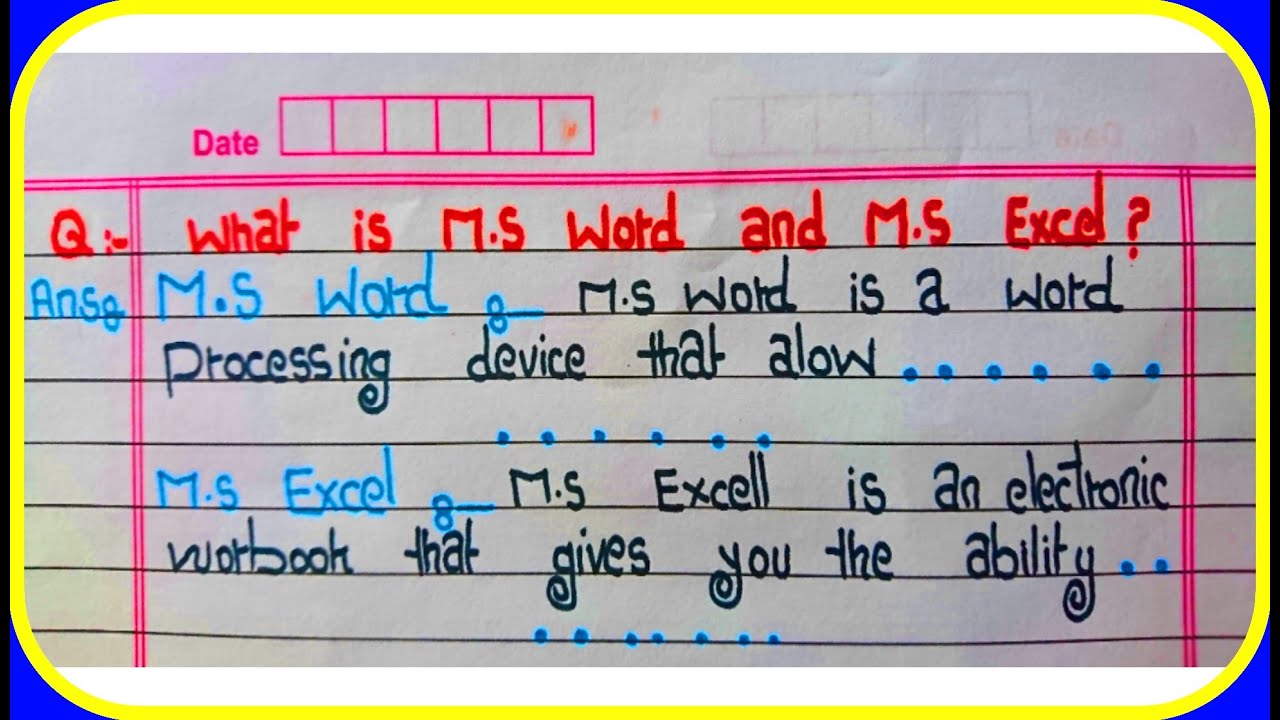 Date
Q:- What is M.S Word and M.S Excel?
Ans: M.S Word :- M.S Word is a word
Processing device that alow . . . . . .
. . . . . .
M.S Excel :- M.S Excell is an electronic
workbook that gives you the ability . .
. . . . . . .